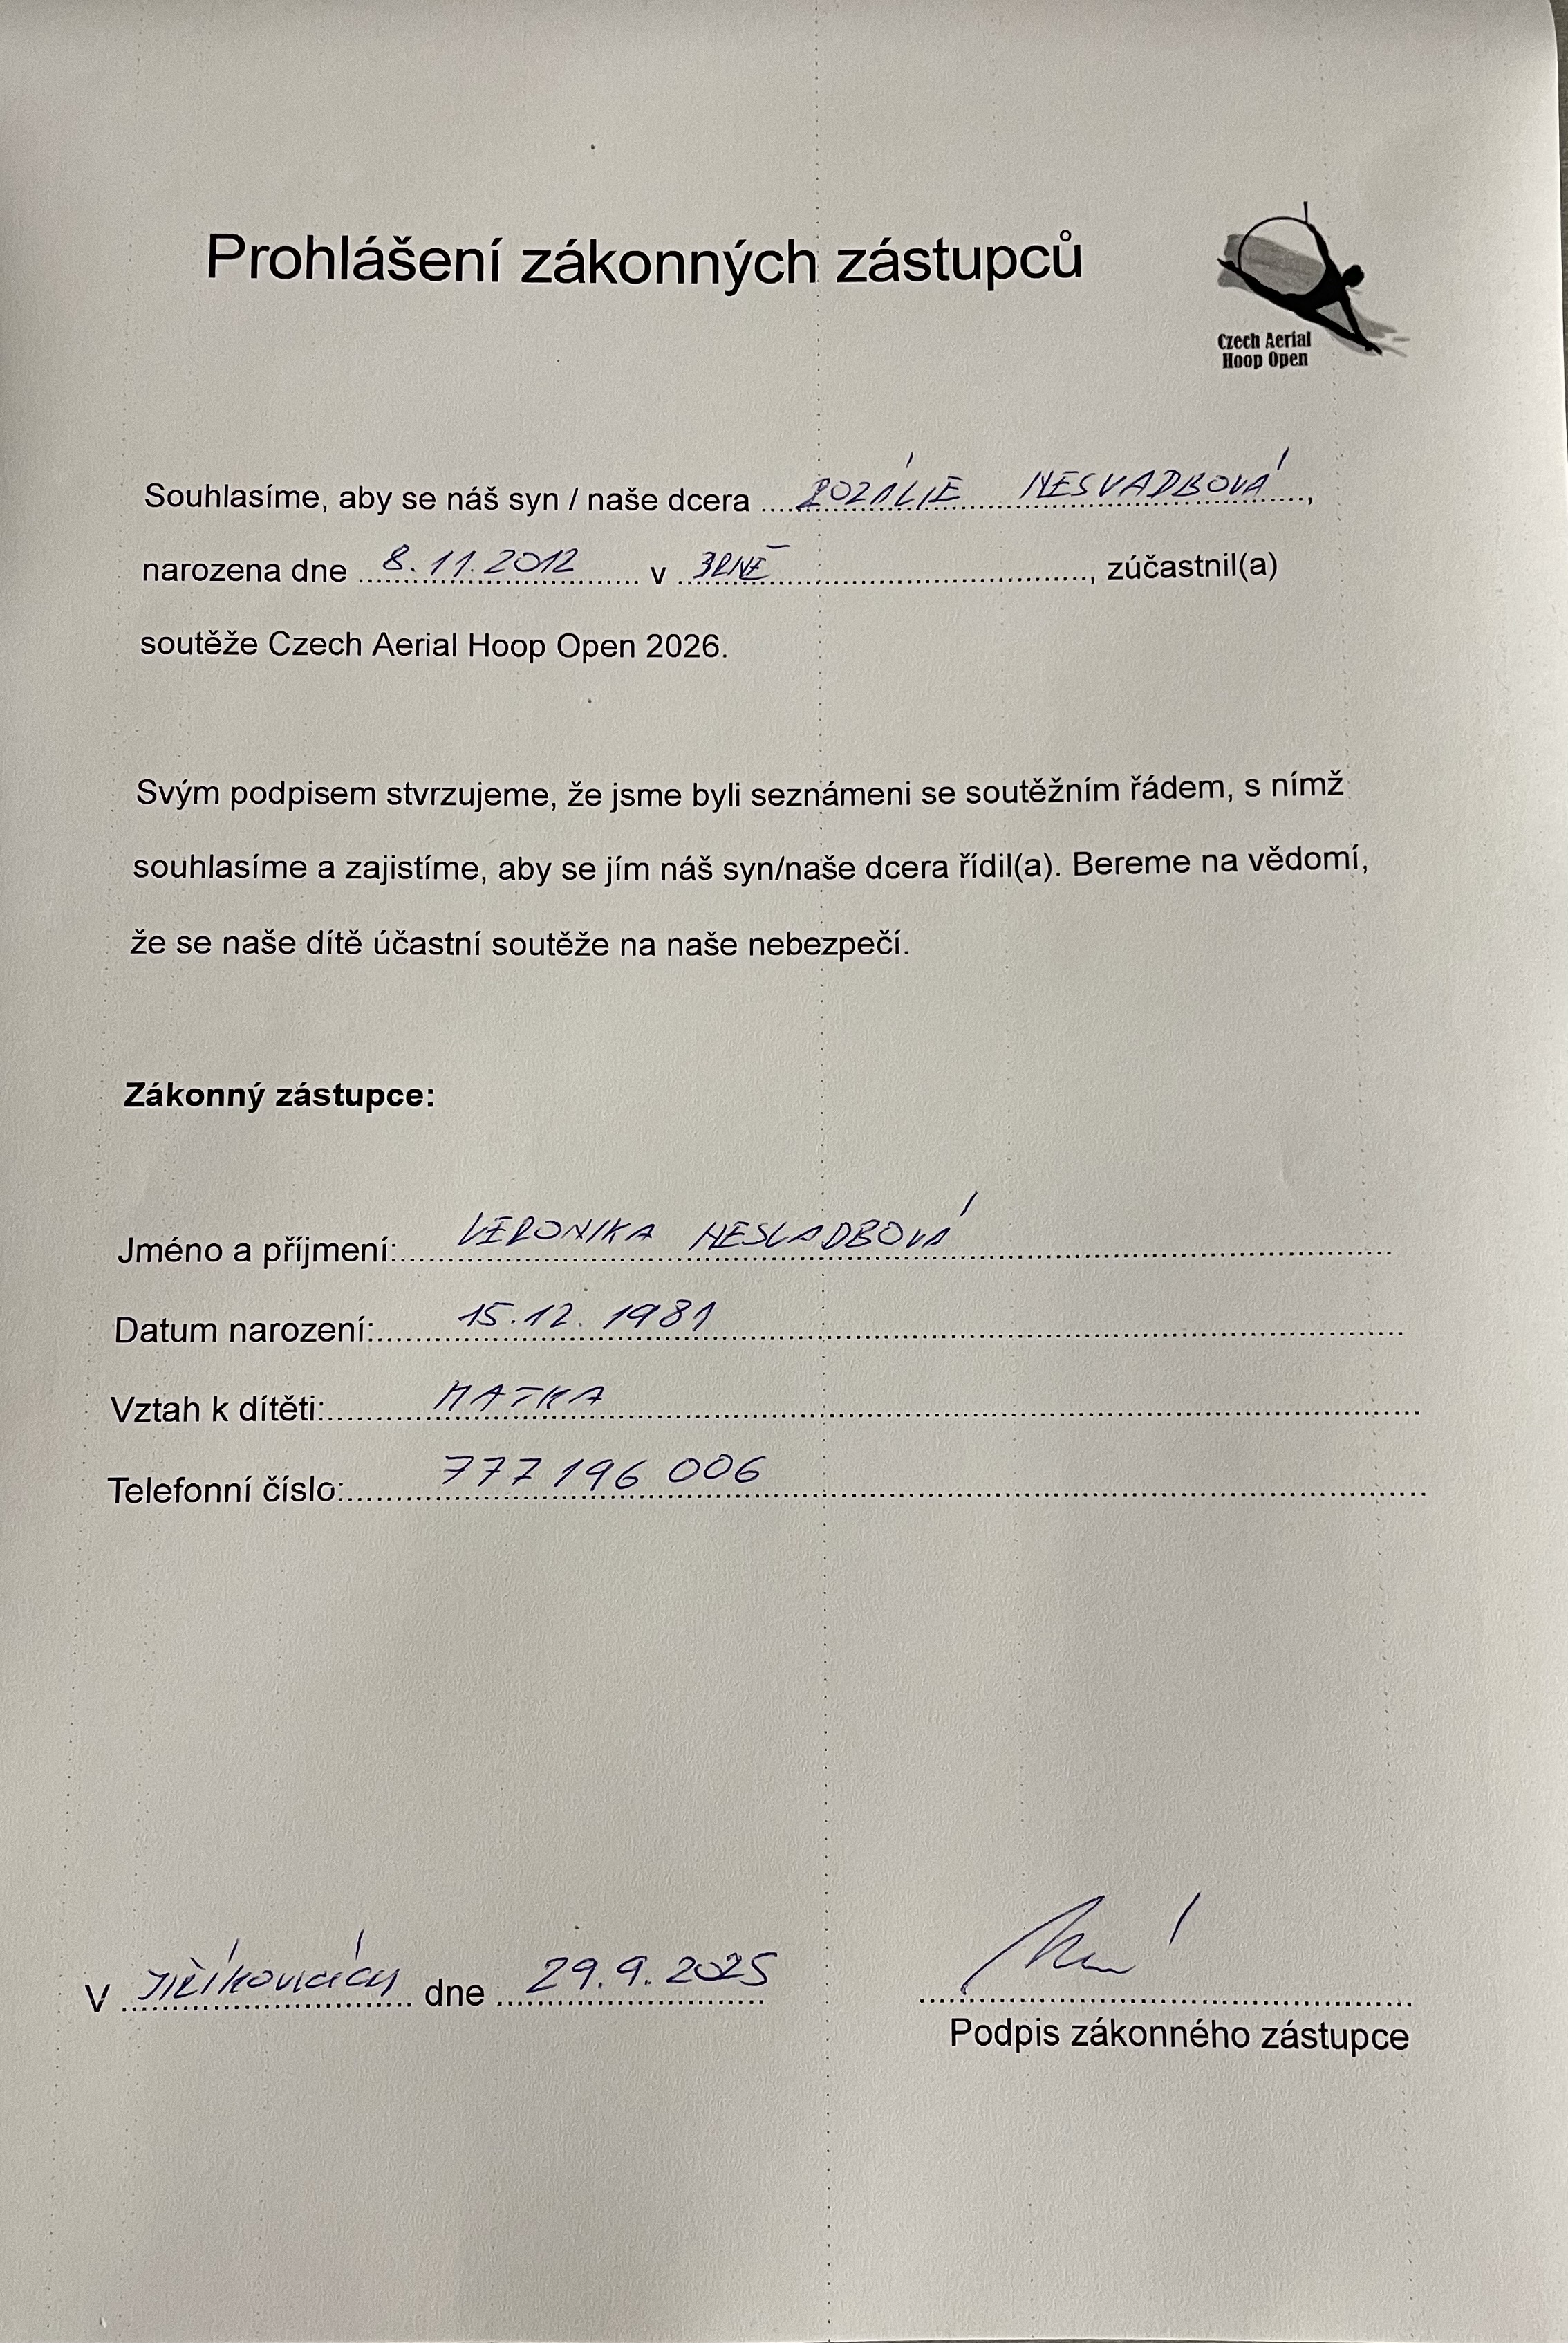 Prohlášení zákonných zástupců
Czech Aerial
Hoop Open
Souhlasíme, aby se náš syn / naše dcera ROZÁLIE NESVADBOVÁ,
narozena dne 8.11.2012 v BRNĚ, zúčastnil(a)
soutěže Czech Aerial Hoop Open 2026.
Svým podpisem stvrzujeme, že jsme byli seznámeni se soutěžním řádem, s nímž
souhlasíme a zajistíme, aby se jím náš syn/naše dcera řídil(a). Bereme na vědomí,
že se naše dítě účastní soutěže na naše nebezpečí.
Zákonný zástupce:
Jméno a příjmení: VERONIKA NESVADBOVÁ
Datum narození: 15.12.1981
Vztah k dítěti: MATKA
Telefonní číslo: 777 196 006
V Jiříkovicích dne 29.9.2025
Podpis zákonného zástupce